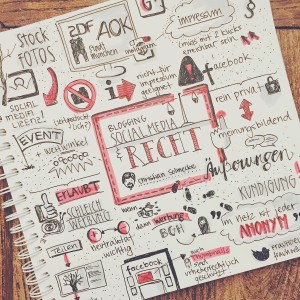 STOCK
FOTOS
ZDF
AOK
impressum
(muss mit 2 klicks
erreichbar sein)
SOCIAL
MEDIA
LIZENZ!
nicht für
impressum
geeignet!
facebook
rein privat
meinungsbildend
EVENT
BLOGGING
SOCIAL MEDIA
& RECHT
christian solmecke
Äußerungen
KÜNDIGUNG
ERLAUBT
SCHLEICH
WERBUNG?
teilen
neutralität
wichtig!
dann werbung
BGH
im Netz ist jeder
ANONYM
facebook
auch
Thumbnails
sind
urheberrechtlich
geschützt!